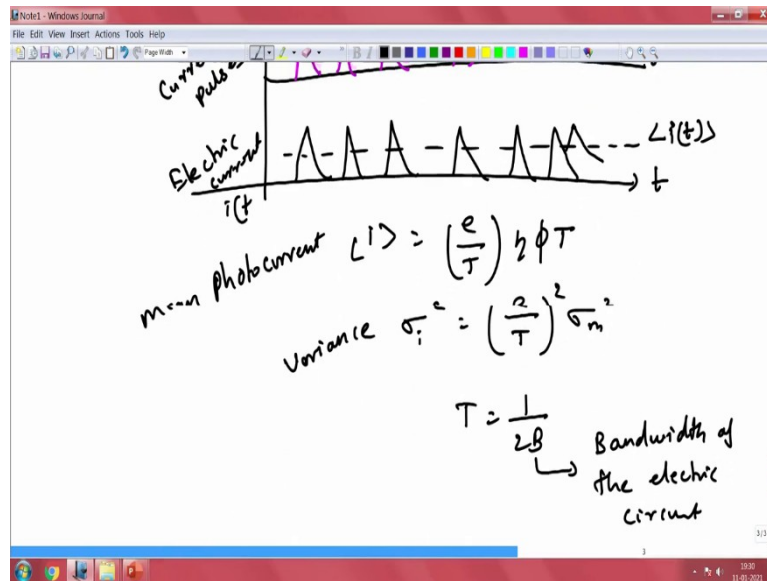 Note1 - Windows Journal
File Edit View Insert Actions Tools Help
Page Width
B I
Curre
pulses
Electric
current
i(t
<i(t)>
t
mean photocurrent <i> = (e/T) η φ T
variance σᵢ² = (e/T)² σₘ²
T = 1/2B
Bandwidth of
the electric
circuit
3/3
3
19:30
11-01-2021